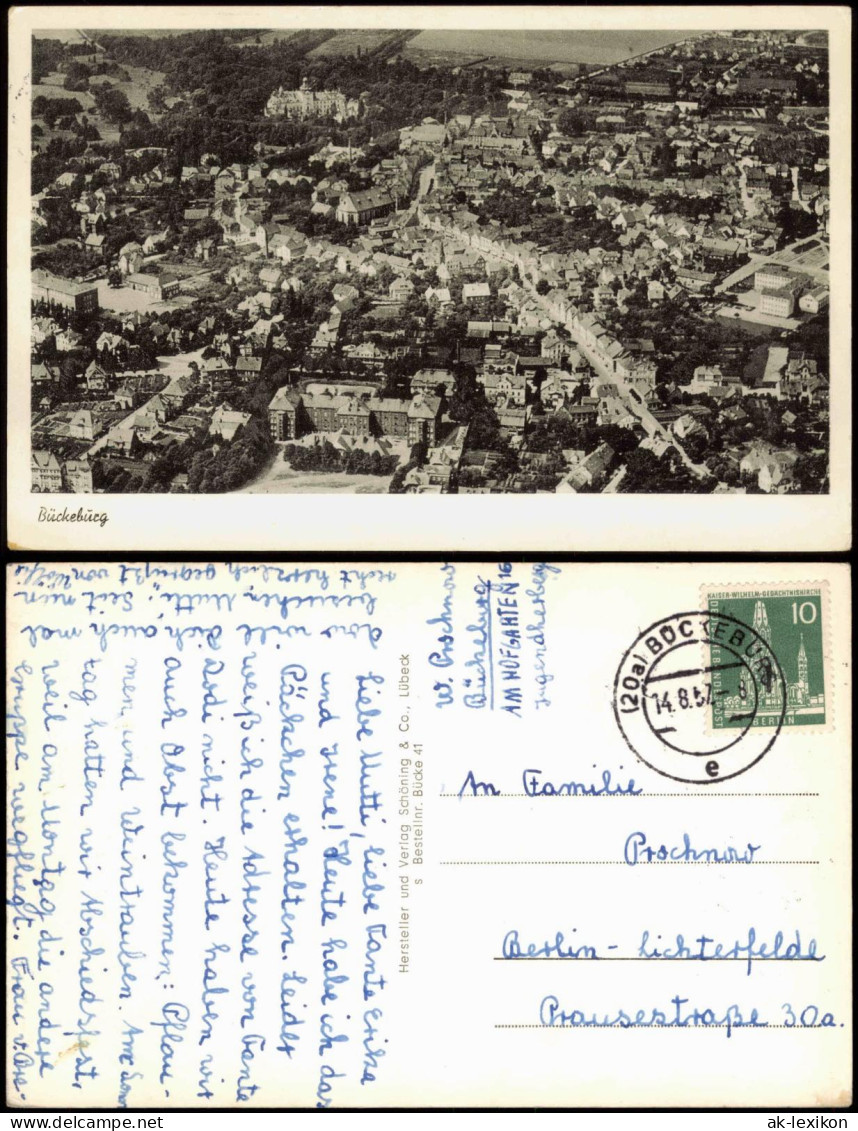 Bückeburg
Liebe Mutti, liebe Tante Erika
und Irene! Heute habe ich das
Päckchen erhalten. Leider
weiß ich die Adresse von Tante
Dodi nicht. Heute haben wir
auch Obst bekommen: Pflau-
men und Weintrauben. Am Sonn
tag hatten wir Abschiedsfest,
weil am Montag die andere
Gruppe wegfliegt. Frau v. Bre-
dow will dich auch mal
besuchen, Mutti. Seit nun
recht herzlich gegrüßt von
Hersteller und Verlag Schöning & Co., Lübeck
s Bestellnr. Bücke 41
W. Prochnow
Bückeburg
AM HOFGARTEN 16
Jugendherberg
(20a) BÜCKEBURG
14.8.57
e
KAISER-WILHELM-GEDÄCHTNISKIRCHE
10
DEUTSCHE BUNDESPOST
BERLIN
An Familie
Prochnow
Berlin-Lichterfelde
Prausestraße 30a.
ak-lexikon